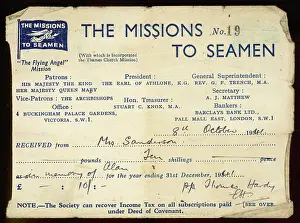 THE MISSIONS
TO SEAMEN
"The Flying Angel"
Mission
THE MISSIONS No. 19
(With which is Incorporated
the Thames Church Mission)
TO SEAMEN
Patrons:
HIS MAJESTY THE KING
HER MAJESTY QUEEN MARY
President:
THE EARL OF ATHLONE, K.G.
General Superintendent:
REV. G. F. TRENCH, M.A.
Vice-Patrons: THE ARCHBISHOPS
Hon. Treasurer:
STUART C. KNOX, M.A.
Secretary:
A. J. MATTHEW
Office:
4 BUCKINGHAM PALACE GARDENS,
VICTORIA, S.W.1
Bankers:
BARCLAYS BANK LTD.
PALL MALL EAST, LONDON, S.W.1
8th October 1941
RECEIVED from Mrs Sanderson
pounds Ten shillings pence
memory of Alan for the year ending 31st December, 1941
£ : 10/- : pp Thomas Hardy
NOTE.—The Society can recover Income Tax on all subscriptions paid
under Deed of Covenant. [SEE OVER.